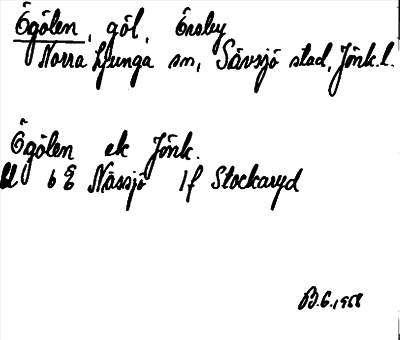 Ögölen, göl, Ersby
Norra Ljunga sn, Sävsjö stad, Jönk.l.
Ögölen ek Jönk.
bl 6 E Nässjö 1f Stockaryd
B.G. 1958